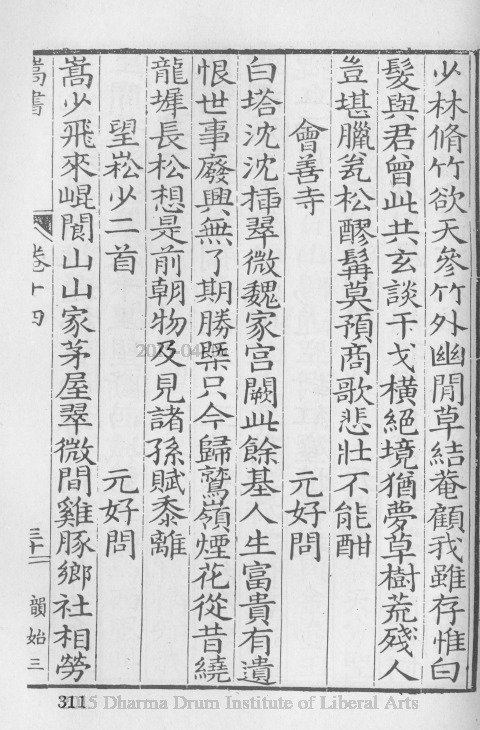 少林脩竹欲天參竹外幽閒草結菴顧我雖存惟白
髮與君曾此共玄談干戈橫絕境猶夢草樹荒殘人
豈堪臘瓮松醪髯莫預商歌悲壯不能酣
會善寺 元好問
白塔沈沈揷翠微魏家宮闕此餘基人生富貴有遺
恨世事廢興無了期勝槩只今歸鷲嶺煙花從昔繞
龍墀長松想是前朝物及見諸孫賦黍離
望崧少二首 元好問
嵩少飛來崐閬山山家茅屋翠微間雞豚鄉社相勞
嵩書 卷十四 三十二 韻始三
311
2015 Dharma Drum Institute of Liberal Arts